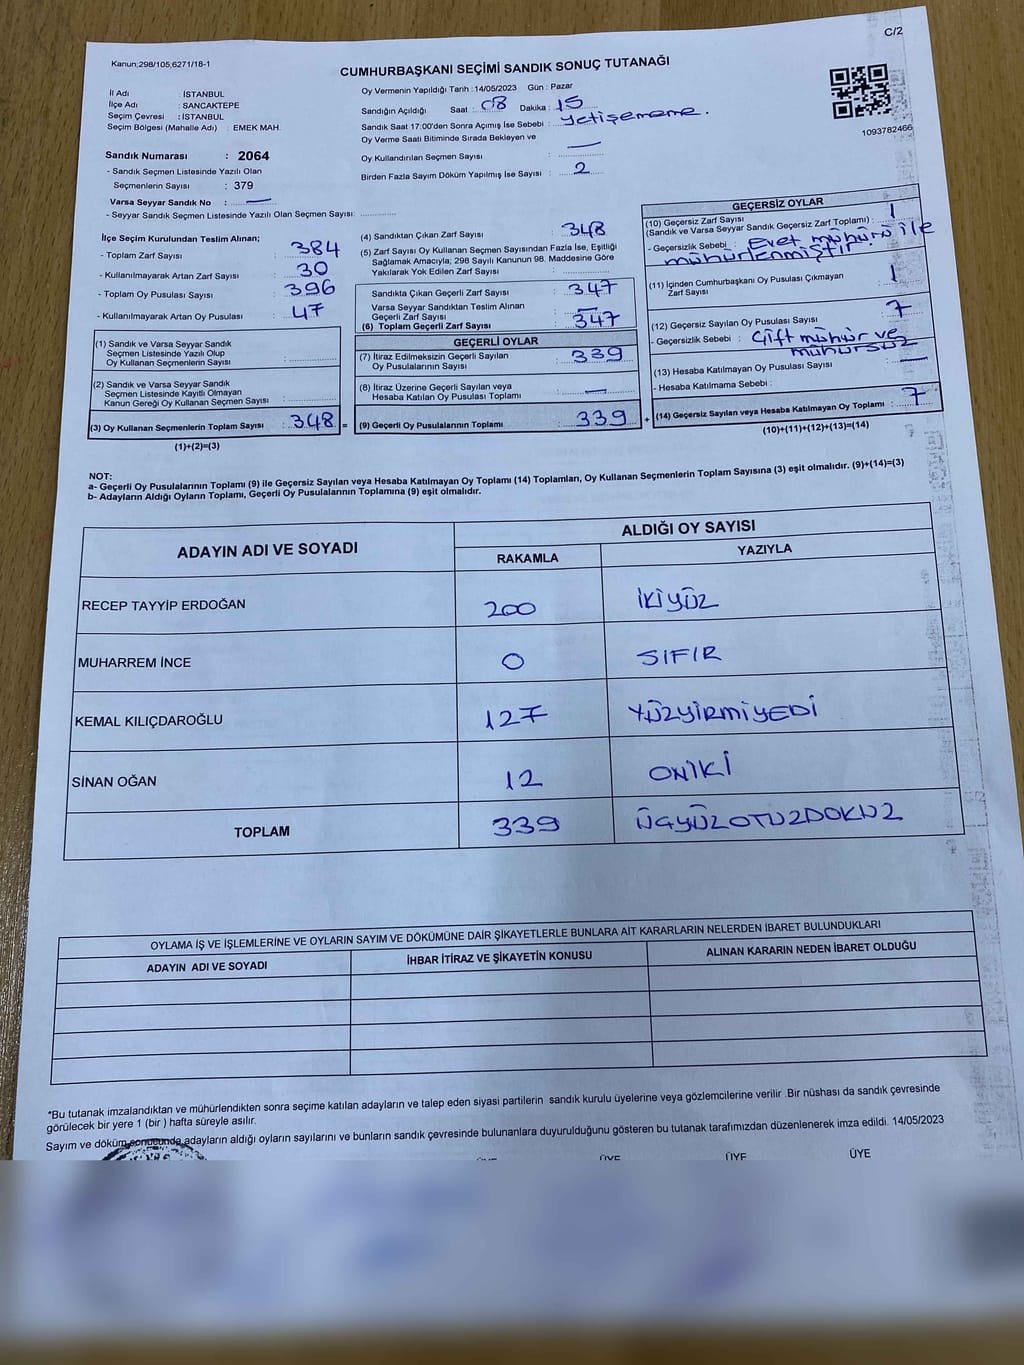 C/2
Kanun;298/105,6271/18-1
CUMHURBAŞKANI SEÇİMİ SANDIK SONUÇ TUTANAĞI
1093782466
İl Adı : İSTANBUL
İlçe Adı : SANCAKTEPE
Seçim Çevresi : İSTANBUL
Seçim Bölgesi (Mahalle Adı) : EMEK MAH.
Sandık Numarası : 2064
- Sandık Seçmen Listesinde Yazılı Olan
Seçmenlerin Sayısı : 379
Varsa Seyyar Sandık No : —
- Seyyar Sandık Seçmen Listesinde Yazılı Olan Seçmen Sayısı:
Oy Vermenin Yapıldığı Tarih : 14/05/2023 Gün : Pazar
Sandığın Açıldığı Saat : 08 Dakika : 15
Sandık Saat 17:00'den Sonra Açımış İse Sebebi : Yetişememe.
Oy Verme Saati Bitiminde Sırada Bekleyen ve
Oy Kullandırılan Seçmen Sayısı : —
Birden Fazla Sayım Döküm Yapılmış İse Sayısı : 2
İlçe Seçim Kurulundan Teslim Alınan;
- Toplam Zarf Sayısı : 384
- Kullanılmayarak Artan Zarf Sayısı : 30
- Toplam Oy Pusulası Sayısı : 396
- Kullanılmayarak Artan Oy Pusulası : 47
(1) Sandık ve Varsa Seyyar Sandık
Seçmen Listesinde Yazılı Olup
Oy Kullanan Seçmenlerin Sayısı :
(2) Sandık ve Varsa Seyyar Sandık
Seçmen Listesinde Kayıtlı Olmayan
Kanun Gereği Oy Kullanan Seçmen Sayısı :
(3) Oy Kullanan Seçmenlerin Toplam Sayısı : 348 =
(1)+(2)=(3)
(4) Sandıktan Çıkan Zarf Sayısı : 348
(5) Zarf Sayısı Oy Kullanan Seçmen Sayısından Fazla İse, Eşitliği
Sağlamak Amacıyla; 298 Sayılı Kanunun 98. Maddesine Göre
Yakılarak Yok Edilen Zarf Sayısı :
Sandıkta Çıkan Geçerli Zarf Sayısı : 347
Varsa Seyyar Sandıktan Teslim Alınan
Geçerli Zarf Sayısı : —
(6) Toplam Geçerli Zarf Sayısı : 347
GEÇERLİ OYLAR
(7) İtiraz Edilmeksizin Geçerli Sayılan
Oy Pusulalarının Sayısı : 339
(8) İtiraz Üzerine Geçerli Sayılan veya
Hesaba Katılan Oy Pusulası Toplamı : —
(9) Geçerli Oy Pusulalarının Toplamı : 339 +
GEÇERSİZ OYLAR
(10) Geçersiz Zarf Sayısı
(Sandık ve Varsa Seyyar Sandık Geçersiz Zarf Toplamı) : 1
- Geçersizlik Sebebi : Evet mühürü ile
mühürlenmiştir
(11) İçinden Cumhurbaşkanı Oy Pusulası Çıkmayan
Zarf Sayısı : 1
(12) Geçersiz Sayılan Oy Pusulası Sayısı : 7
- Geçersizlik Sebebi : Çift mühür ve
mühürsüz
(13) Hesaba Katılmayan Oy Pusulası Sayısı : —
- Hesaba Katılmama Sebebi :
(14) Geçersiz Sayılan veya Hesaba Katılmayan Oy Toplamı : 7
(10)+(11)+(12)+(13)=(14)
NOT:
a- Geçerli Oy Pusulalarının Toplamı (9) ile Geçersiz Sayılan veya Hesaba Katılmayan Oy Toplamı (14) Toplamları, Oy Kullanan Seçmenlerin Toplam Sayısına (3) eşit olmalıdır. (9)+(14)=(3)
b- Adayların Aldığı Oyların Toplamı, Geçerli Oy Pusulalarının Toplamına (9) eşit olmalıdır.
ADAYIN ADI VE SOYADI ALDIĞI OY SAYISI
RAKAMLA YAZIYLA
RECEP TAYYİP ERDOĞAN 200 İKİYÜZ
MUHARREM İNCE 0 SIFIR
KEMAL KILIÇDAROĞLU 127 YÜZYİRMİYEDİ
SİNAN OĞAN 12 ONİKİ
TOPLAM 339 ÜÇYÜZOTUZDOKUZ
OYLAMA İŞ VE İŞLEMLERİNE VE OYLARIN SAYIM VE DÖKÜMÜNE DAİR ŞİKAYETLERLE BUNLARA AİT KARARLARIN NELERDEN İBARET BULUNDUKLARI
ADAYIN ADI VE SOYADI İHBAR İTİRAZ VE ŞİKAYETİN KONUSU ALINAN KARARIN NEDEN İBARET OLDUĞU
*Bu tutanak imzalandıktan ve mühürlendikten sonra seçime katılan adayların ve talep eden siyasi partilerin sandık kurulu üyelerine veya gözlemcilerine verilir .Bir nüshası da sandık çevresinde
görülecek bir yere 1 (bir ) hafta süreyle asılır.
Sayım ve döküm sonucunda adayların aldığı oyların sayılarını ve bunların sandık çevresinde bulunanlara duyurulduğunu gösteren bu tutanak tarafımızdan düzenlenerek imza edildi. 14/05/2023
ÜYE ÜYE ÜYE ÜYE